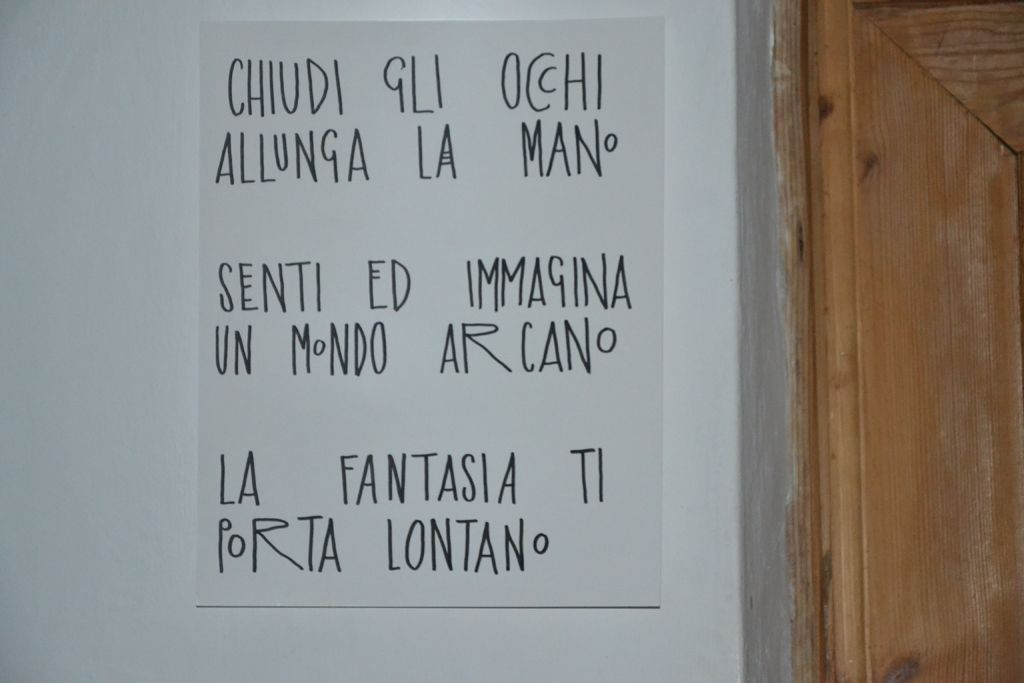 CHIUDI GLI OCCHI
ALLUNGA LA MANO
SENTI ED IMMAGINA
UN MONDO ARCANO
LA FANTASIA TI
PORTA LONTANO